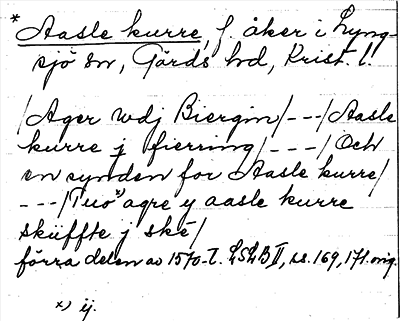 * Aasle kurre, f. åker i Lyng-
sjö sn, Gärds hd, Krist. l.
/Ager wdj Biergin/---/Aasle
kurre j fierring/---/Och
en synden for Aasle kurre/
---/Tuo x) agre y aasle kurre
skiffte j ske/
förra delen av 1570-t. LSLB II, ss. 169, 171. orig.
x) ij.